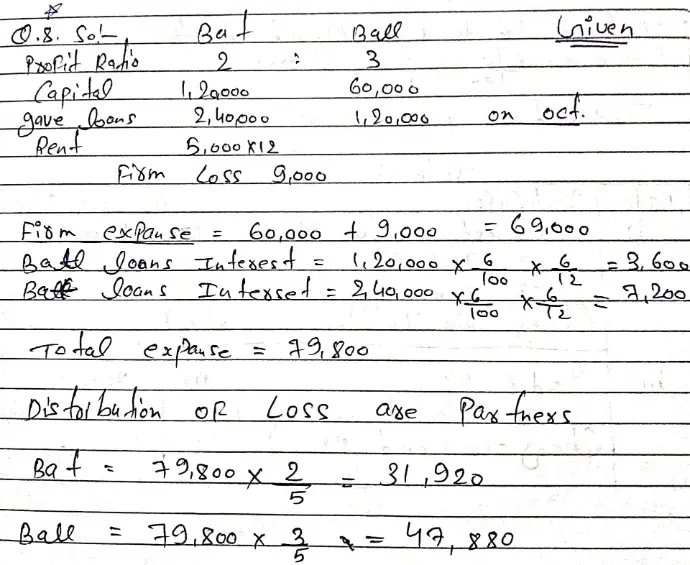 Q.8. Sol-, Bat Ball Given
Profit Ratio 2 : 3
Capital 1,20000 60,000
gave loans 2,40,000 1,20,000 on oct.
Rent 5,000 X12
Firm Loss 9,000
Firm expanse = 60,000 + 9,000 = 69,000
Ball loans Interest = 1,20,000 x 6/100 x 6/12 = 3,600
Bat loans Interset = 2,40,000 x 6/100 x 6/12 = 7,200
Total expanse = 79,800
Distoribution OR Loss are Partners
Bat = 79,800 x 2/5 = 31,920
Ball = 79,800 x 3/5 = 47,880